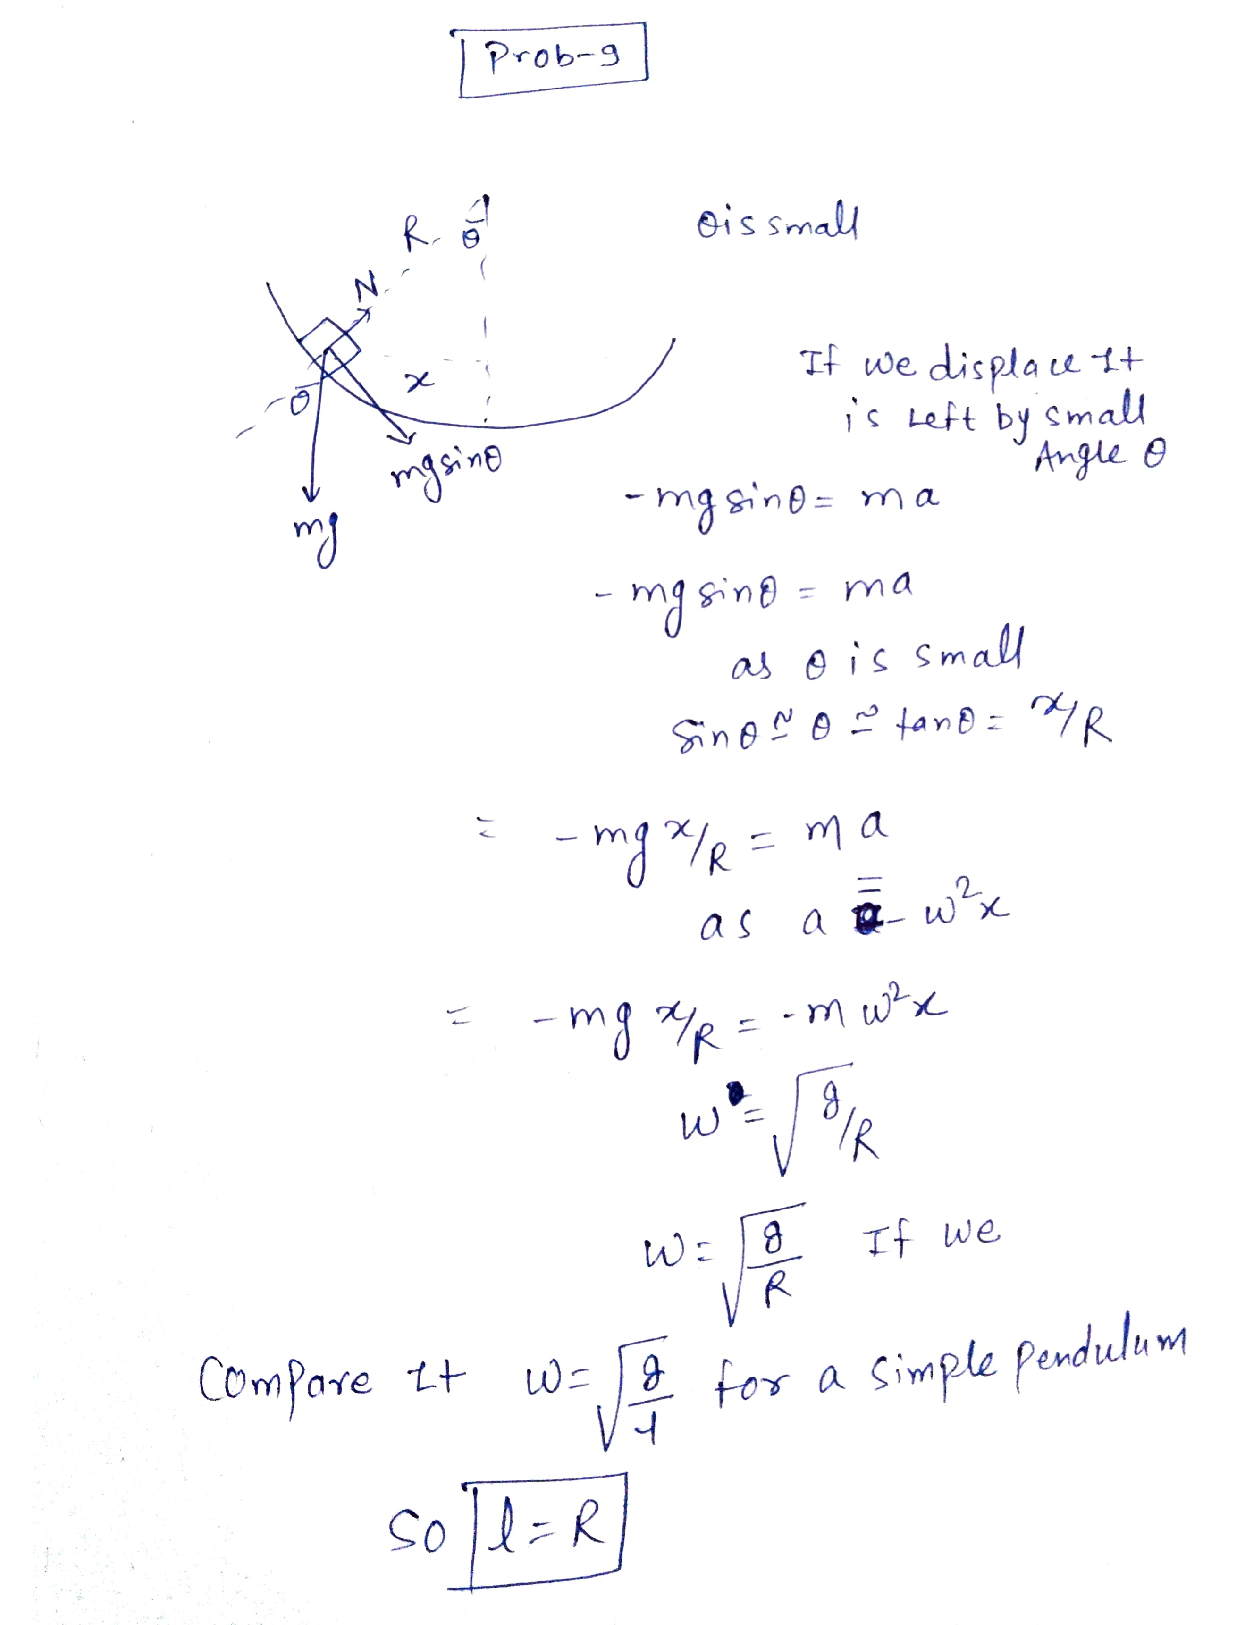 Prob-9
R θ
θ is small
N
If we displace It
x
θ
is Left by small
Angle θ
mg sinθ
- mg sinθ = ma
mg
- mg sinθ = ma
as θ is small
Sinθ ≃ θ ≃ tanθ = x/R
= - mg x/R = ma
as a = - w²x
= - mg x/R = - m w²x
w = √g/R
w = √g/R If we
Compare It w = √g/l for a simple pendulum
So l = R